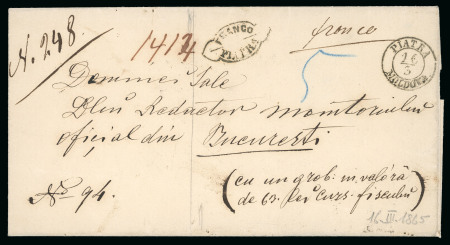 N. 248
1414
FRANCO
PIATRA
franco
PIATRA
16
3
MOLDOVA
5
Domnei Sale
Dlui Redactor monitorului
oficial din Bucuresti
No 94.
(cu un grob. in valórá
de 63. lei curs. fiscului)
16-III-1865